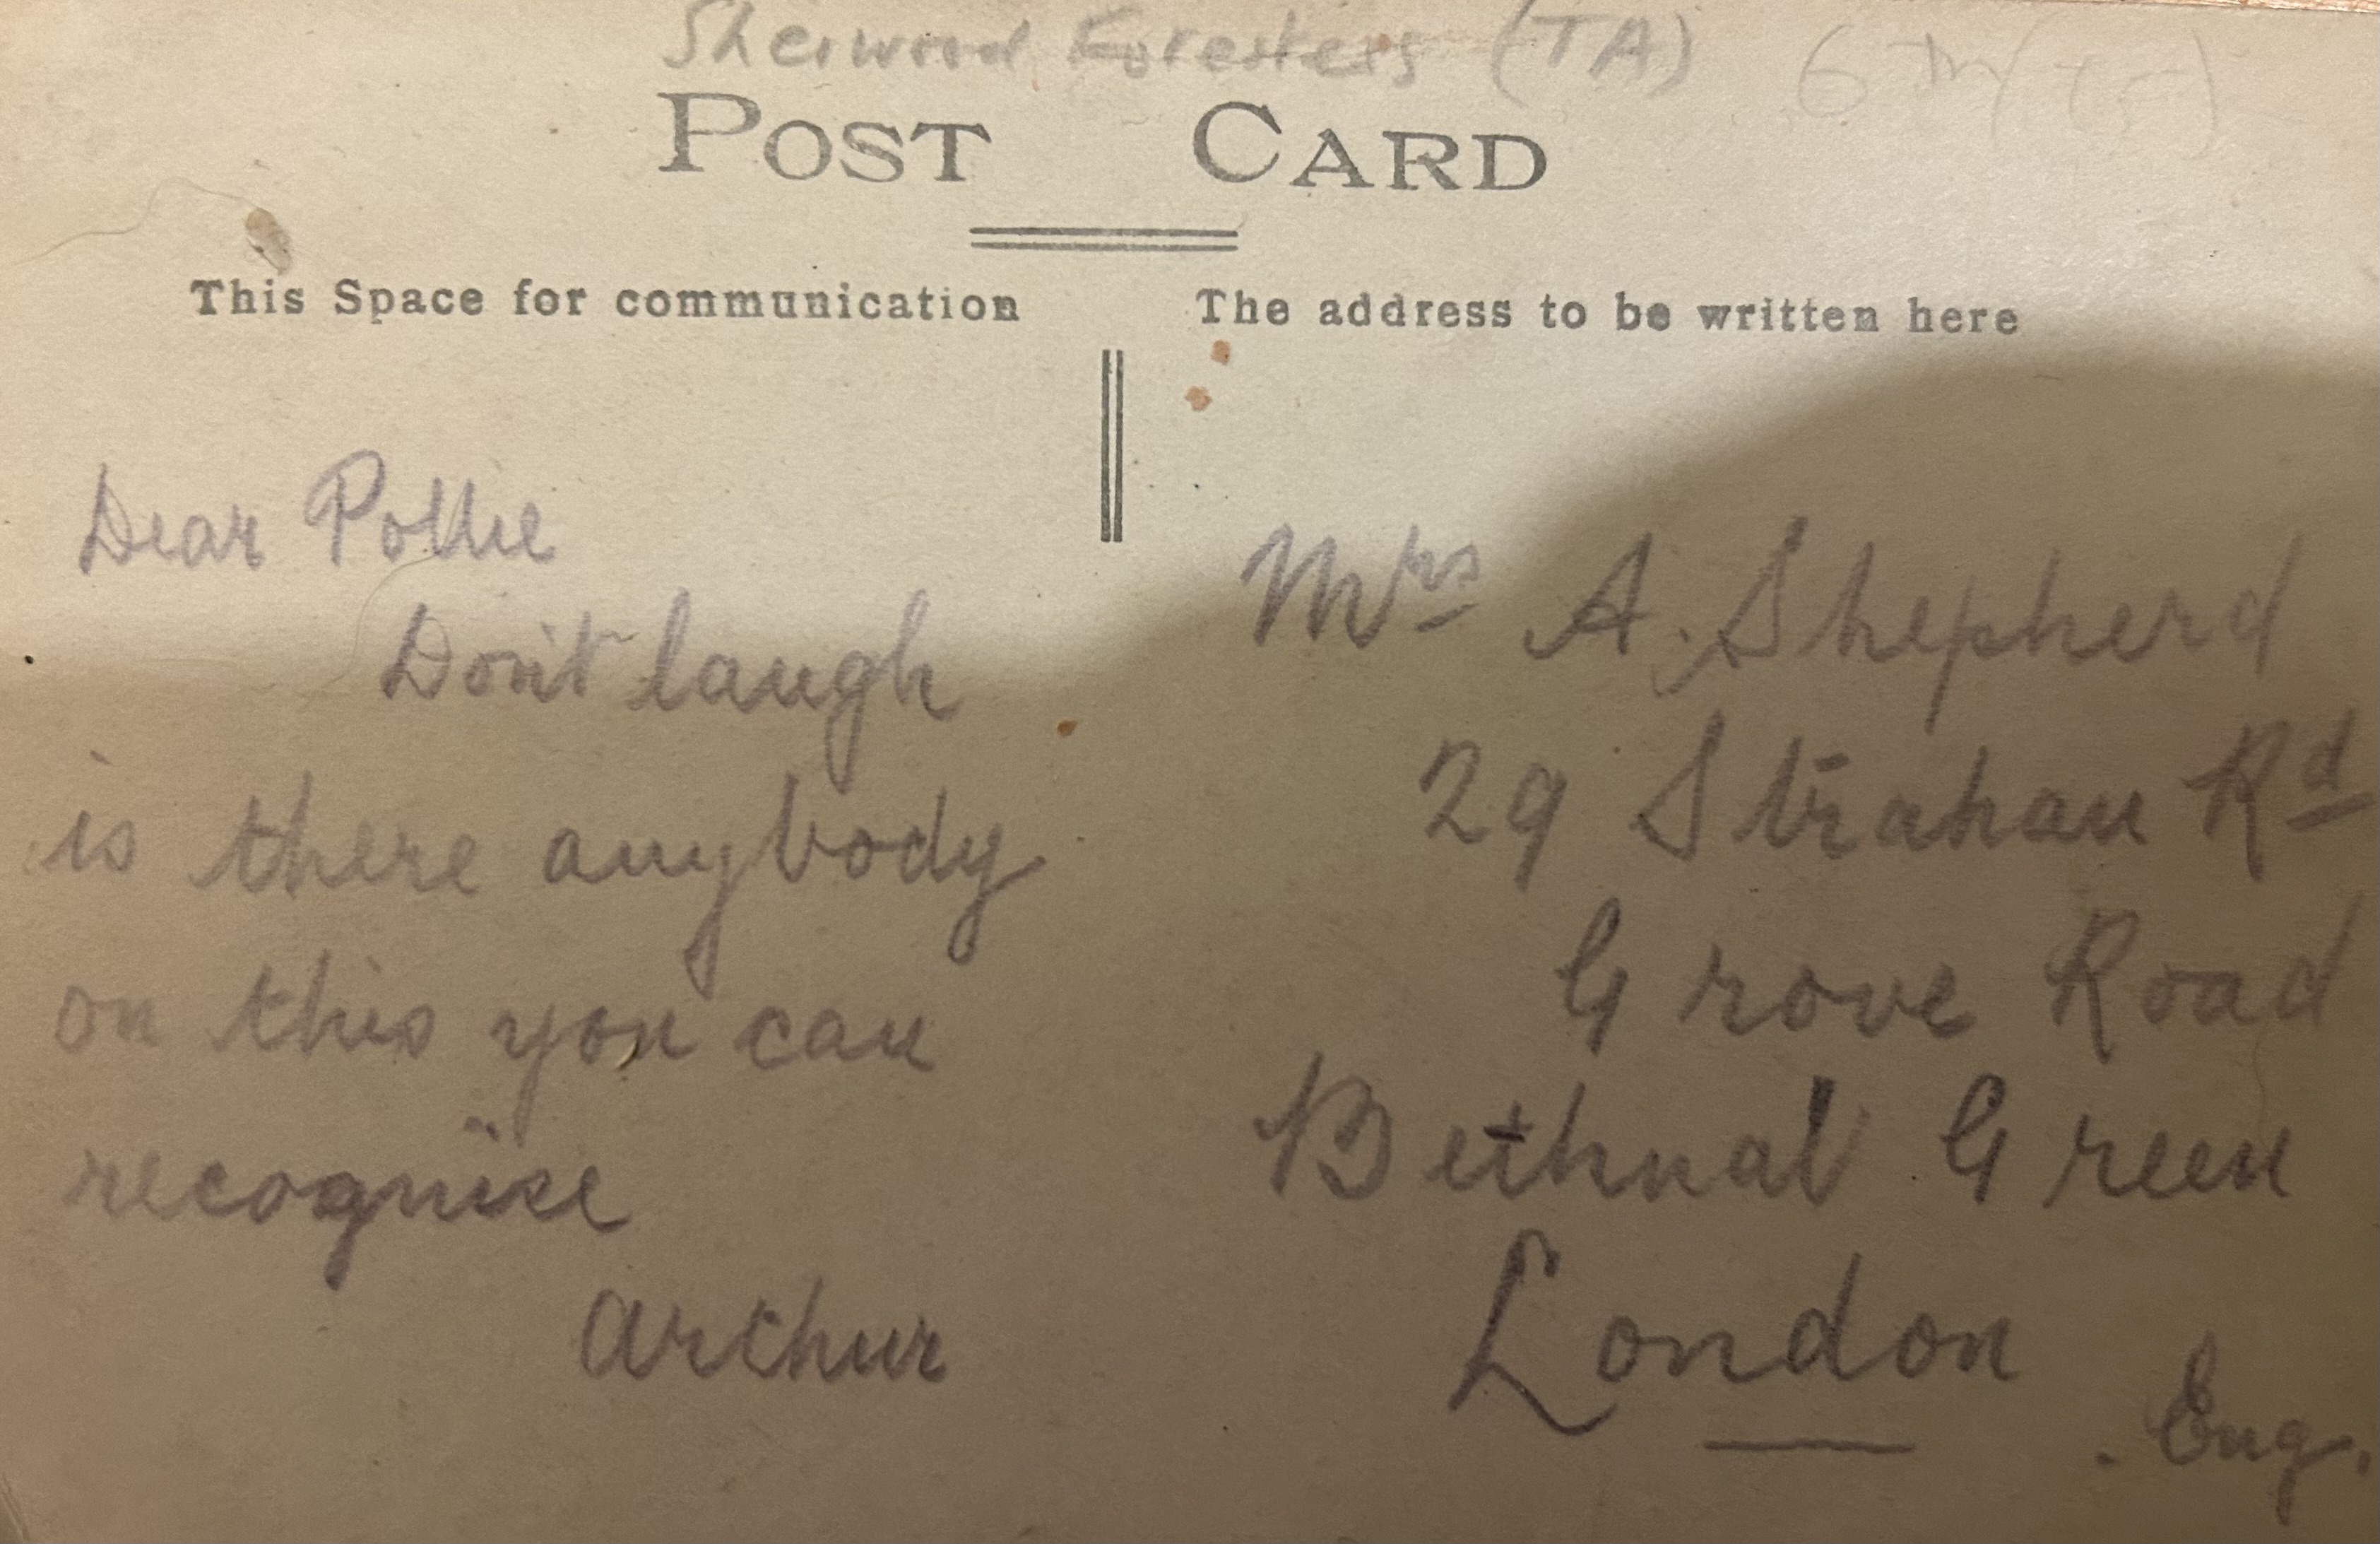 Sherwood Foresters (TA) 6th
POST CARD
This Space for communication
The address to be written here
Dear Pollie
Don't laugh
is there anybody
on this you can
recognise
Arthur
Mrs A. Shepherd
29 Strahan Rd
Grove Road
Bethnal Green
London
Eng.